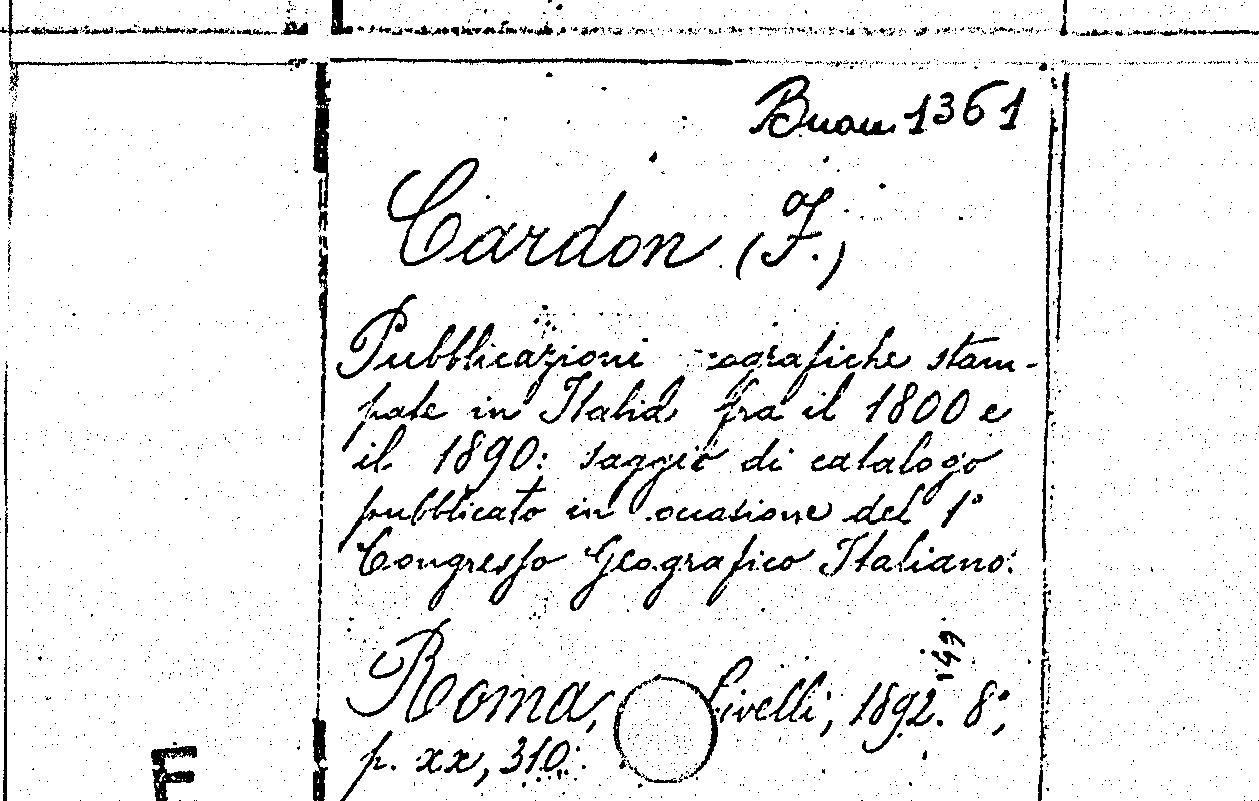 Buon. 1361
Cardon (F.)
Pubblicazioni geografiche stam-
pate in Italia fra il 1800 e
il 1890: saggio di catalogo
pubblicato in occasione del 1°
Congresso Geografico Italiano.
Roma, Civelli, 1892. 8°,
p. xx, 310.
E